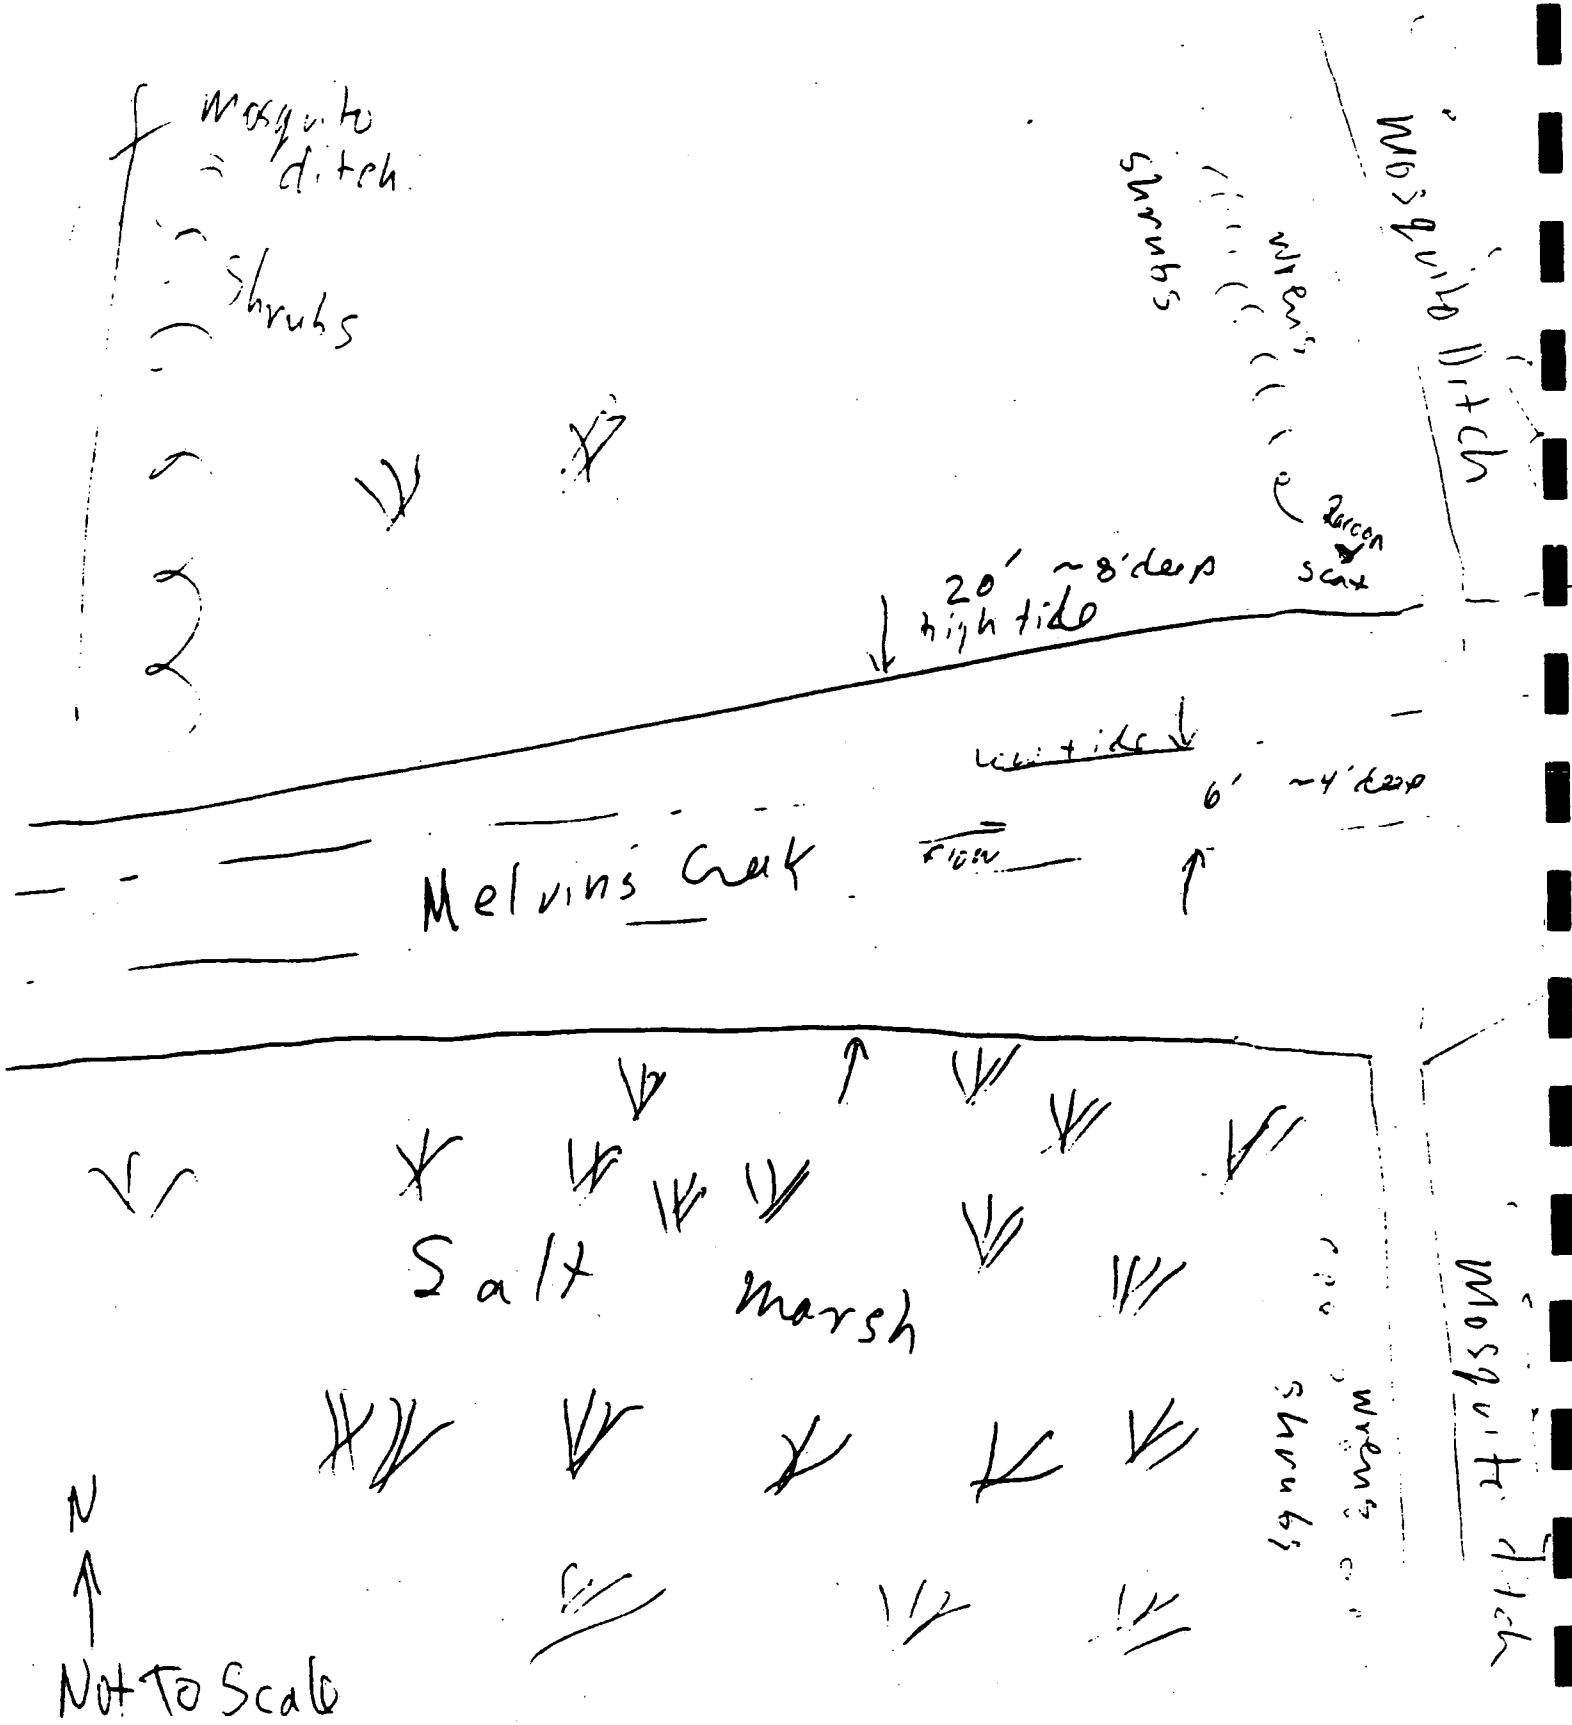 Mosquito
ditch.
Shrubs
Shrubs
wrens
Mosquito Ditch
Racoon
scat
20' ~8' deep
high tide
low tide
6' ~4' deep
Melvins Creek
Flow
Salt marsh
Shrubs
wrens
Mosquito Ditch
N
Not To Scale